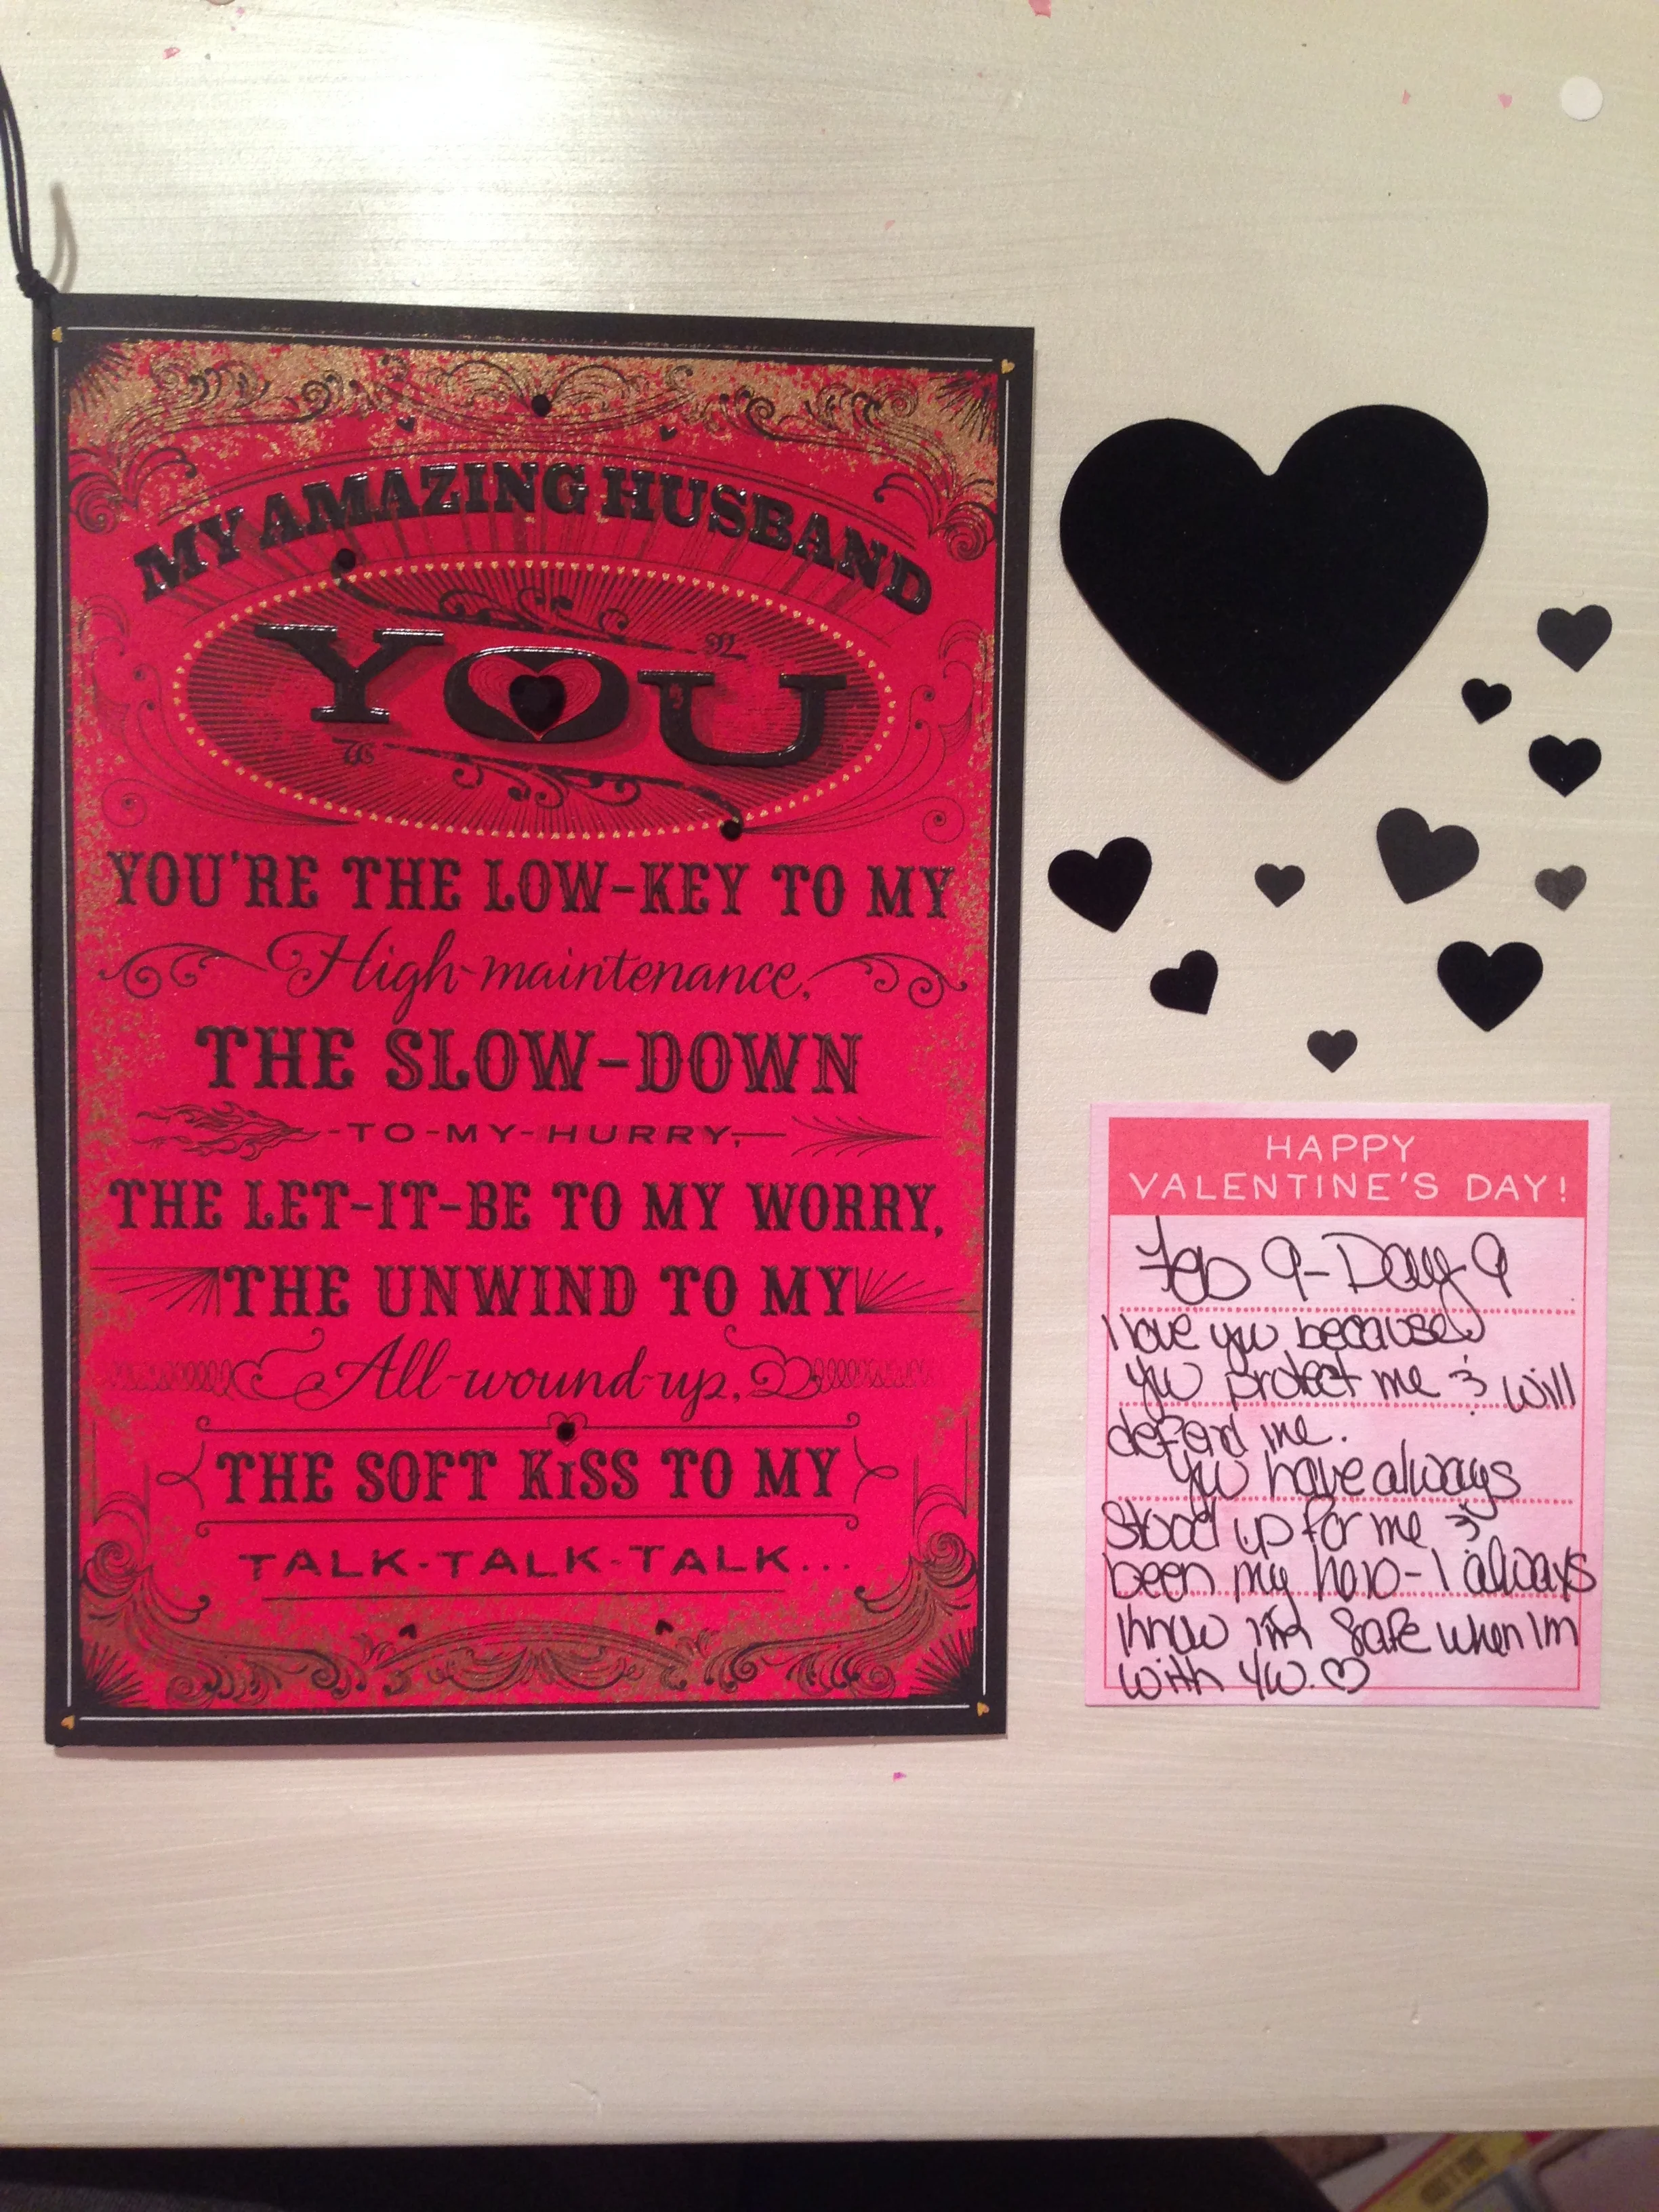 MY AMAZING HUSBAND
YOU
YOU'RE THE LOW-KEY TO MY
High-maintenance,
THE SLOW-DOWN
-TO-MY-HURRY,-
THE LET-IT-BE TO MY WORRY,
THE UNWIND TO MY
All-wound-up,
THE SOFT KiSS TO MY
TALK-TALK-TALK...
HAPPY
VALENTINE'S DAY!
Feb 9-Day 9
I love you because
you protect me & will
defend me.
You have always
stood up for me &
been my hero-I always
know I'm safe when Im
with you.♡